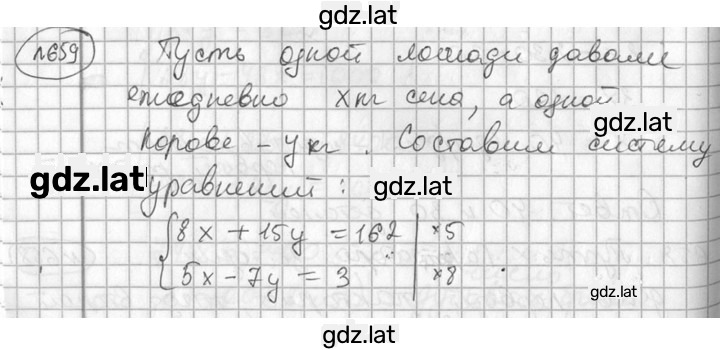 gdz.lat
n659 Пусть одной лошади давали
ежедневно x кг сена, а одной
gdz.lat
корове - y кг. Составим систему
gdz.lat
уравнений:
gdz.lat
{ 8x + 15y = 162 | *5
5x - 7y = 3 | *8
gdz.lat
gdz.lat